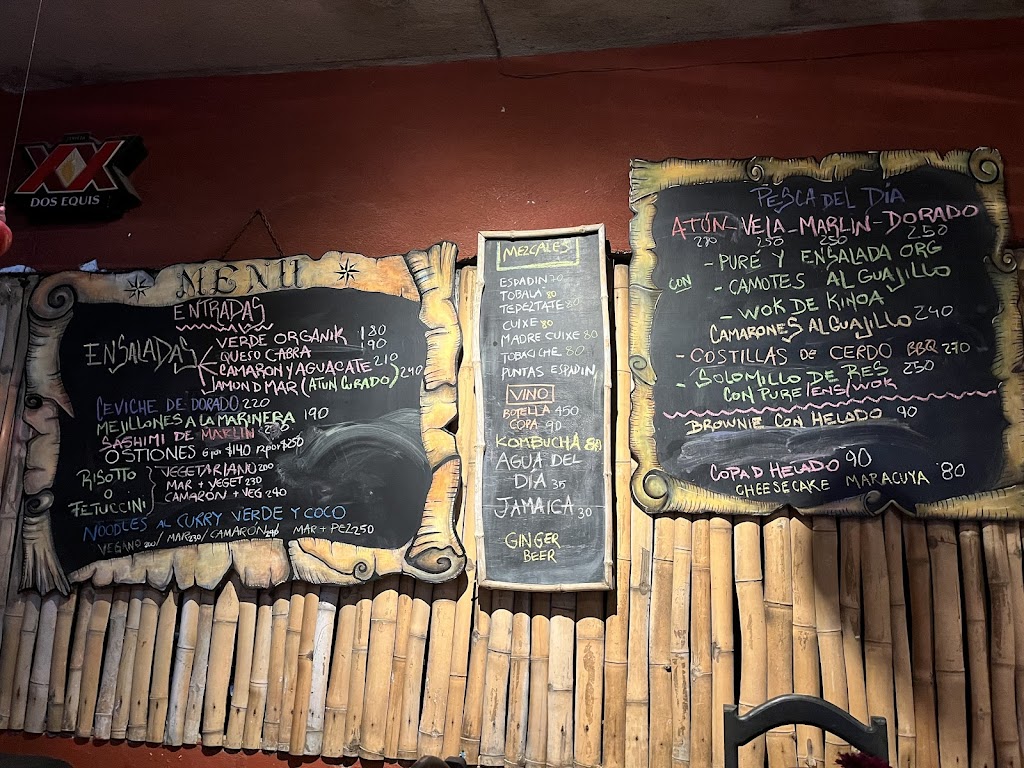 XX
DOS EQUIS
MENU
ENTRADAS
ENSALADAS
VERDE ORGANIK 180
QUESO CABRA 190
CAMARON Y AGUACATE 210
JAMON D MAR (ATUN CURADO) 240
CEVICHE DE DORADO 220
MEJILLONES A LA MARINERA 190
SASHIMI DE MARLIN
OSTIONES 6 por $140 12 por $250
RISOTTO
O
FETUCCINI
VEGETARIANO 200
MAR + VEGET 230
CAMARON + VEG 240
NOODLES AL CURRY VERDE Y COCO
VEGANO 200/ MAR 230/ CAMARON 240/ MAR + PEZ 250
MEZCALES
ESPADIN 70
TOBALA 80
TEPEZTATE 80
CUIXE 80
MADRE CUIXE 80
TOBACICHE 80
PUNTAS ESPADIN
VINO
BOTELLA 450
COPA 90
KOMBUCHA
AGUA DEL
DIA 35
JAMAICA 30
GINGER
BEER
PESCA DEL DÍA
ATÚN - VELA - MARLIN - DORADO
270 250 250 250
CON
- PURÉ Y ENSALADA ORG
- CAMOTES AL GUAJILLO
- WOK DE KINOA
CAMARONES AL GUAJILLO 240
- COSTILLAS DE CERDO BBQ 270
- SOLOMILLO DE RES 250
CON PURE/ENS/WOK
BROWNIE CON HELADO 90
COPA D HELADO 90
CHEESECAKE MARACUYA 80